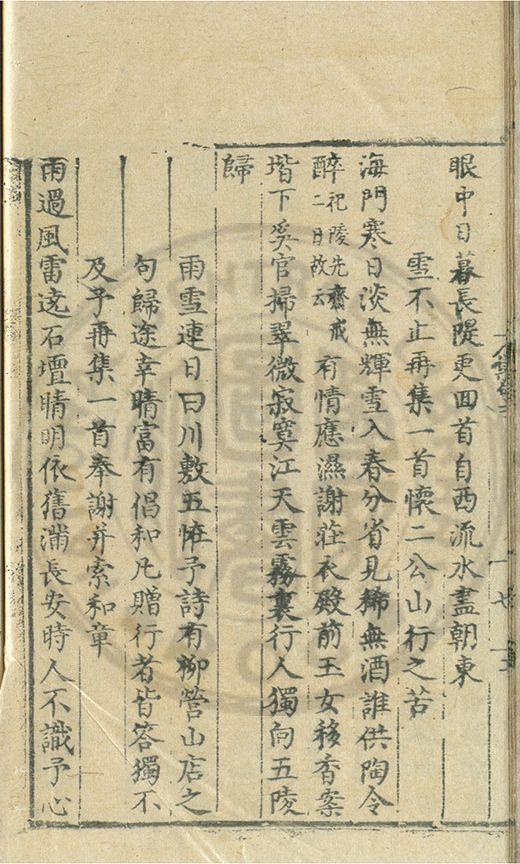 眼中日暮長隄更回首自西流水盡朝東
雪不止再集一首懷二公山行之苦
海門寒日淡無輝雪入春分省見稀無酒誰供陶令
醉祀陵先齋戒二日故云有情應濕謝莊衣殿前玉女移香案
堦下奚官掃翠微寂寞江天雲霧裏行人獨向五陵
歸
雨雪連日曰川敷五恠予詩有柳營山店之
句歸途幸晴富有倡和凡贈行者皆答獨不
及予再集一首奉謝并索和章
雨過風雷遶石壇晴明依舊滿長安時人不識予心